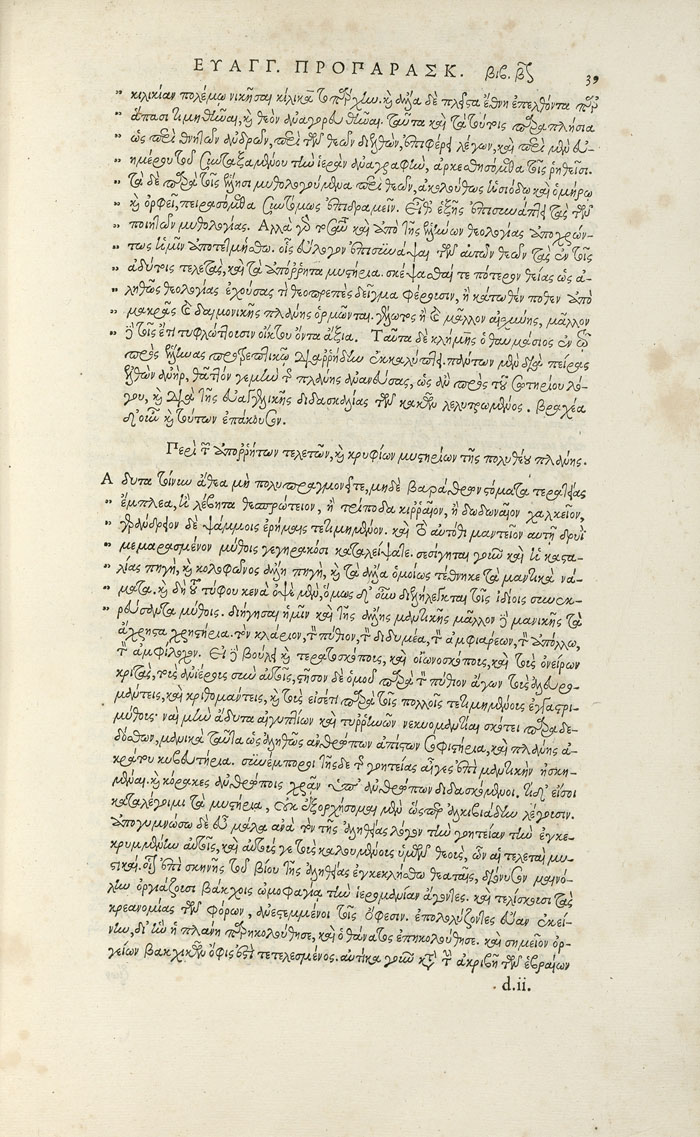 ΕΥΑΓΓ. ΠΡΟΠΑΡΑΣΚ. βιβ. β 39
κιλικίαν πολέμῳ νικῆσαι κίλικα τὸ ὕπαρχον. καὶ ἄλλα δὲ πλεῖστα ἔθνη ἐπελθόντα παρ'
ἅπασι τιμηθῆναι, καὶ θεὸν ἀναγορευθῆναι. ταῦτα καὶ τὰ τούτοις παραπλήσια
ὡς περὶ θνητῶν ἀνδρῶν, περὶ τῶν θεῶν διελθὼν, ἐπιφέρει λέγων, καὶ περὶ μὲν εὐ-
ημέρου τοῦ συνταξαμένου τὴν ἱερὰν ἀναγραφὴν, ἀρκεσθησόμεθα τοῖς ῥηθεῖσι.
τὰ δὲ παρὰ τοῖς ἕλλησι μυθολογούμενα περὶ θεῶν, ἀκολούθως ἡσιόδῳ καὶ ὁμήρῳ
καὶ ὀρφεῖ, πειρασόμεθα συντόμως ἐπιδραμεῖν. Εἶθ' ἑξῆς ἐπισυνάπτει τὰς τῶν
ποιητῶν μυθολογίας. Ἀλλὰ γὰρ ταῦτα καὶ ἀπὸ τῆς ἑλλήνων θεολογίας ἀποχρών-
τως ἡμῖν ἀποτετμήσθω. οἷς εὔλογον ἐπισυνάψαι τῶν αὐτῶν θεῶν τὰς ἐν τοῖς
ἀδύτοις τελετὰς, καὶ τὰ ἀπόῤῥητα μυστήρια. σκέψασθαί τε πότερον θείας ὡς ἀ-
ληθῶς θεολογίας ἐχούσας τὶ θεοπρεπὲς δεῖγμα φέρουσιν, ἢ κάτωθέν ποθεν ἀπὸ
μακρᾶς καὶ δαιμονικῆς πλάνης ὁρμῶνται. γέλωτος ἢ καὶ μᾶλλον αἰσχύνης, μᾶλλον
δὲ τοῖς ἔτι τυφλώττουσιν οἴκτου ὄντα ἄξια. Ταῦτα δὲ κλήμης ὁ θαυμάσιος ἐν τῷ
πρὸς ἕλληνας προτρεπτικῷ διαῤῥήδην ἐκκαλύπτει. πάντων μὲν διὰ πείρας
ἐλθὼν ἀνὴρ, θᾶττόν γε μὴν τῆς πλάνης ἀνανεύσας, ὡς ἂν πρὸς τοῦ σωτηρίου λό-
γου, καὶ διὰ τῆς εὐαγγελικῆς διδασκαλίας τῶν κακῶν λελυτρωμένος. Βραχέα
δ' οὖν καὶ τούτων ἐπάκουσον.
Περὶ τῶν ἀποῤῥήτων τελετῶν, καὶ κρυφίων μυστηρίων τῆς πολυθέου πλάνης.
Α δυτα τοίνυν ἄθεα μὴ πολυπραγμονεῖτε, μηδὲ βαράθρων στόματα τερατείας
ἔμπλεα, ἢ λέβητα θεσπρώτειον, ἢ τρίποδα κιῤῥαῖον, ἢ δωδωναῖον χαλκεῖον,
γεράνδρυον δὲ ψάμμοις ἐρήμαις τετιμημένον. καὶ τὸ αὐτόθι μαντεῖον αὐτῇ δρυῒ
μεμαρασμένον μύθοις γεγηρακόσι καταλείψατε. σεσίγηται γοῦν καὶ ἡ καστα-
λίας πηγὴ, καὶ κολοφῶνος ἄλλη πηγὴ, καὶ τὰ ἄλλα ὁμοίως τέθνηκε τὰ μαντικὰ νά-
ματα. καὶ δὴ τοῦ τύφου κενὰ ὀψὲ μὲν, ὅμως δ' οὖν διελήλεγκται τοῖς ἰδίοις συνεκ-
ρεύσαντα μύθοις. διήγησαι ἡμῖν καὶ τῆς ἄλλης μαντικῆς μᾶλλον δὲ μανικῆς τὰ
ἄχρηστα χρηστήρια. τὸν κλάριον, τὸν πύθιον, τὸν διδυμέα, τὸν ἀμφιάρεων, τὸν ἀπόλλω,
τὸν ἀμφίλοχον. Εἰ δὲ βούλει καὶ τερατοσκόπους, καὶ οἰωνοσκόπους, καὶ τοὺς ὀνείρων
κριτὰς, τοὺς ἀνιέρους σὺν αὐτοῖς, στῆσον δὲ ὁμοῦ παρὰ τὸν πύθιον ἄγων τοὺς ἀλευρο-
μάντεις, καὶ κριθομάντεις, καὶ τοὺς εἰσέτι παρὰ τοῖς πολλοῖς τετιμημένους ἐγγαστρι-
μύθους· ναὶ μὴν ἄδυτα αἰγυπτίων καὶ τυῤῥηνῶν νεκυομαντεῖαι σκότει παραδε-
δόσθων, μανικὰ ταῦτα ὡς ἀληθῶς ἀνθρώπων ἀπίστων σοφιστήρια, καὶ πλάνης ἀ-
κράτου κυβευτήρια. συνέμποροι τῆσδε τῆς γοητείας αἶγες ἐπὶ μαντικὴν ἠσκη-
μέναι. καὶ κόρακες ἀνθρώποις χρᾶν ὑπὸ ἀνθρώπων διδασκόμενοι. τί δ' εἴ σοι
καταλέγοιμι τὰ μυστήρια, οὐκ ἐξορχήσομαι μὲν ὥσπερ ἀλκιβιάδην λέγουσιν.
ἀπογυμνώσω δὲ εὖ μάλα ἀνὰ τὸν τῆς ἀληθείας λόγον τὴν γοητείαν τὴν ἐγκε-
κρυμμένην αὐτοῖς, καὶ αὐτούς γε τοὺς καλουμένους ὑμῶν θεοὺς, ὧν αἱ τελεταὶ μυ-
στικαὶ. οἷον ἐπὶ σκηνῆς τοῦ βίου τῆς ἀληθείας ἐγκεκλήσθω θεαταῖς, διόνυσον μαινό-
λην ὀργιάζουσι βάκχοις ὠμοφαγίᾳ τὴν ἱερομανίαν ἄγοντες. καὶ τελίσκουσι τὰς
κρεανομίας τῶν φόρων, ἀνεστεμμένοι τοῖς ὄφεσιν. ἐπολολύζοντες εὔαν ἐκεί-
νην, δι' ἣν ἡ πλάνη παρηκολούθησε, καὶ ὁ θάνατος ἐπηκολούθησε. καὶ σημεῖον ὀρ-
γείων βακχικῶν ὄφις ἐστὶ τετελεσμένος. αὐτίκα γοῦν κατὰ τὴν ἀκριβῆ τῶν ἑβραίων
d.ii.